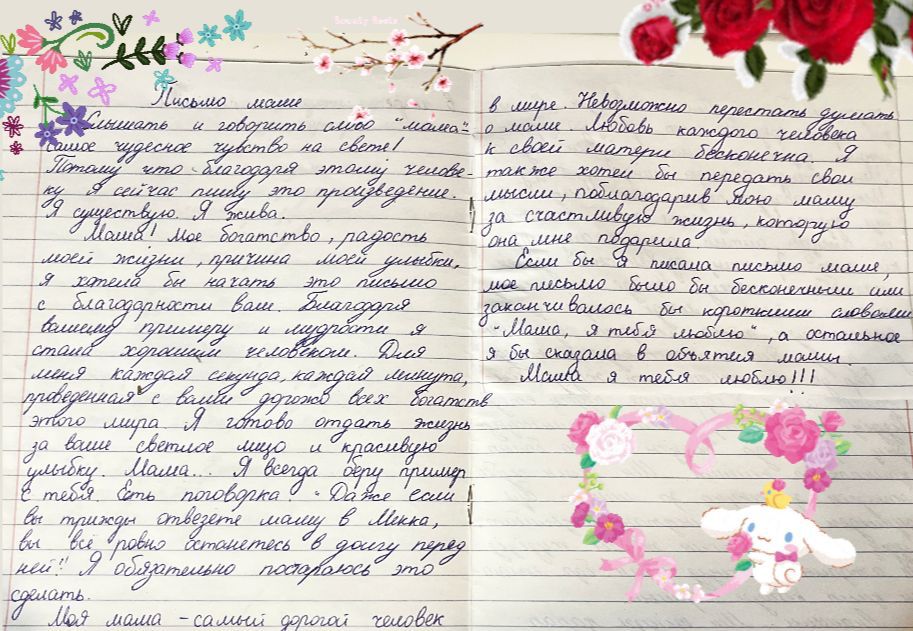 Письмо маме
Слышать и говорить слово "мама"-
самое чудесное чувство на свете!
Потому что благодаря этому челове-
ку я сейчас пишу это произведение.
Я существую. Я жива.
Мама! Мое богатство, радость
моей жизни, причина моей улыбки,
я хотела бы начать это письмо
с благодарности Вам. Благодаря
вашему примеру и мудрости я
стала хорошим человеком. Для
меня каждая секунда, каждая минута,
проведенная с вами дорожа всех богатств
этого мира. Я готова отдать жизнь
за ваше светлое лицо и красивую
улыбку. Мама... Я всегда беру пример
с тебя. Есть поговорка "Даже если
вы трижды отвезёте маму в Мекка,
вы всё ровно останетесь в долгу перед
ней!" Я обязательно постараюсь это
сделать.
Моя мама - самый дорогой человек
в мире. Невозможно перестать думать
о маме. Любовь каждого человека
к своей матери бесконечна. Я
также хотел бы передать свои
мысли, поблагодарив мою маму
за счастливую жизнь, которую
она мне подарила.
Если бы я писала письмо маме,
мое письмо было бы бесконечным или
заканчивалось бы короткими словами
"Мама, я тебя люблю", а остальное
я бы сказала в объятия мамы.
Мама я тебя люблю!!!